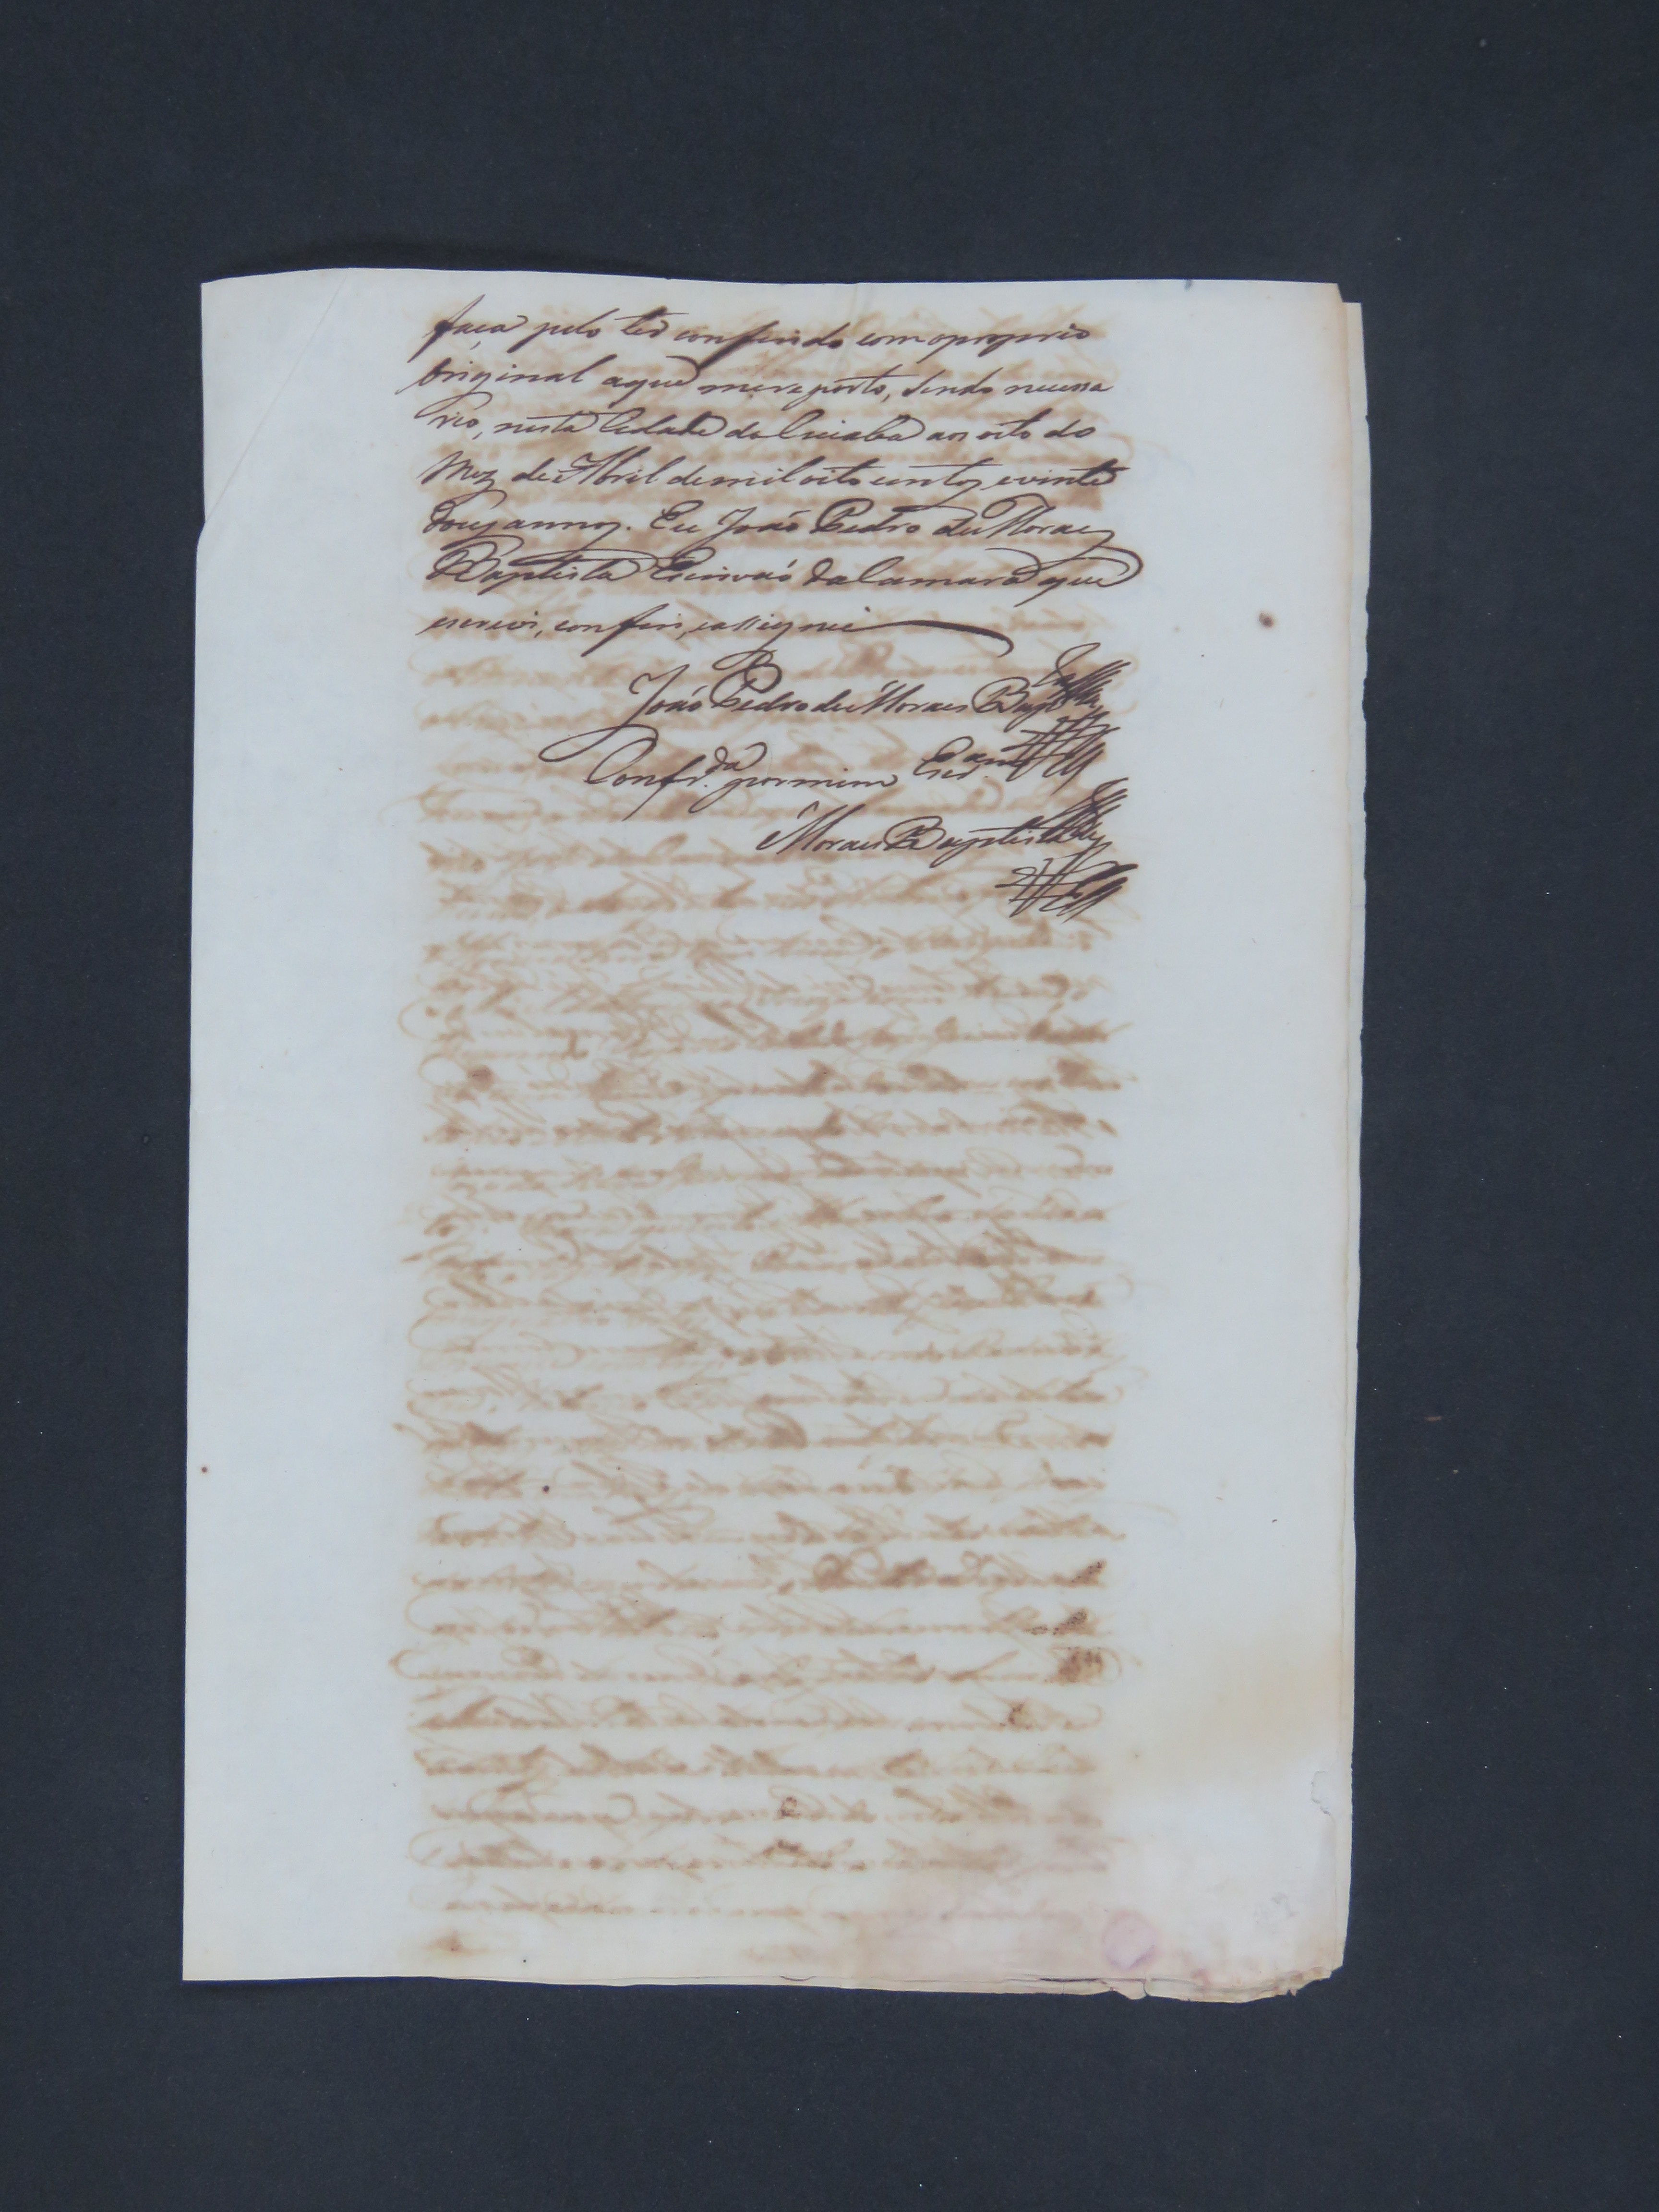 faça pelo ter conferido com o proprio
Original a que me reporto, sendo necessa
rio, nesta Cidade do Cuiabá aos oito do
Mez de Abril de mil oito centos e vinte
dous annos. Eu João Pedro de Moraes
Baptista Escrivaó da Camara que
escrevi, conferi, e assignei
João Pedro de Moraes Bapt.ta
Confr.da por mim Escr.am
Moraes Baptista